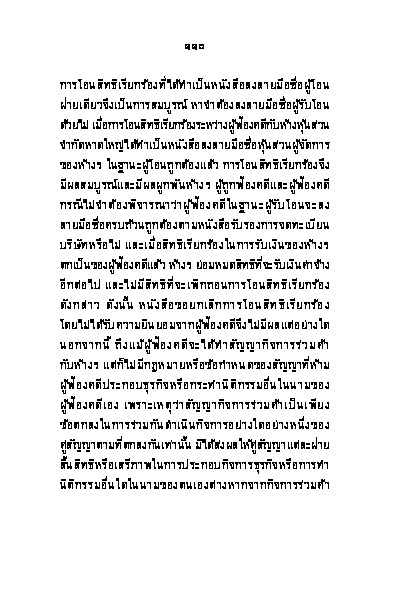 ๑๑๐
การโอนสิทธิเรียกร้องที่ได้ทำเป็นหนังสือลงลายมือชื่อผู้โอน
ฝ่ายเดียวจึงเป็นการสมบูรณ์ หาจำต้องลงลายมือชื่อผู้รับโอน
ด้วยไม่ เมื่อการโอนสิทธิเรียกร้องระหว่างผู้ฟ้องคดีกับห้างหุ้นส่วน
จำกัดหาดใหญ่ได้ทำเป็นหนังสือลงลายมือชื่อหุ้นส่วนผู้จัดการ
ของห้างฯ ในฐานะผู้โอนถูกต้องแล้ว การโอนสิทธิเรียกร้องจึง
มีผลสมบูรณ์และมีผลผูกพันห้างฯ ผู้ถูกฟ้องคดีและผู้ฟ้องคดี
กรณีไม่จำต้องพิจารณาว่าผู้ฟ้องคดีในฐานะผู้รับโอนจะลง
ลายมือชื่อครบถ้วนถูกต้องตามหนังสือรับรองการจดทะเบียน
บริษัทหรือไม่ และเมื่อสิทธิเรียกร้องในการรับเงินของห้างฯ
ตกเป็นของผู้ฟ้องคดีแล้ว ห้างฯ ย่อมหมดสิทธิที่จะรับเงินค่าจ้าง
อีกต่อไป และไม่มีสิทธิที่จะเพิกถอนการโอนสิทธิเรียกร้อง
ดังกล่าว ดังนั้น หนังสือขอยกเลิกการโอนสิทธิเรียกร้อง
โดยไม่ได้รับความยินยอมจากผู้ฟ้องคดีจึงไม่มีผลแต่อย่างใด
นอกจากนี้ ถึงแม้ผู้ฟ้องคดีจะได้ทำสัญญากิจการร่วมค้า
กับห้างฯ แต่ก็ไม่มีกฎหมายหรือข้อกำหนดของสัญญาที่ห้าม
ผู้ฟ้องคดีประกอบธุรกิจหรือกระทำนิติกรรมอื่นในนามของ
ผู้ฟ้องคดีเอง เพราะเหตุว่าสัญญากิจการร่วมค้าเป็นเพียง
ข้อตกลงในการร่วมกันดำเนินกิจการอย่างใดอย่างหนึ่งของ
คู่สัญญาตามที่ตกลงกันเท่านั้น มิได้ส่งผลให้คู่สัญญาแต่ละฝ่าย
สิ้นสิทธิหรือเสรีภาพในการประกอบกิจการธุรกิจหรือการทำ
นิติกรรมอื่นใดในนามของตนเองต่างหากจากกิจการร่วมค้า